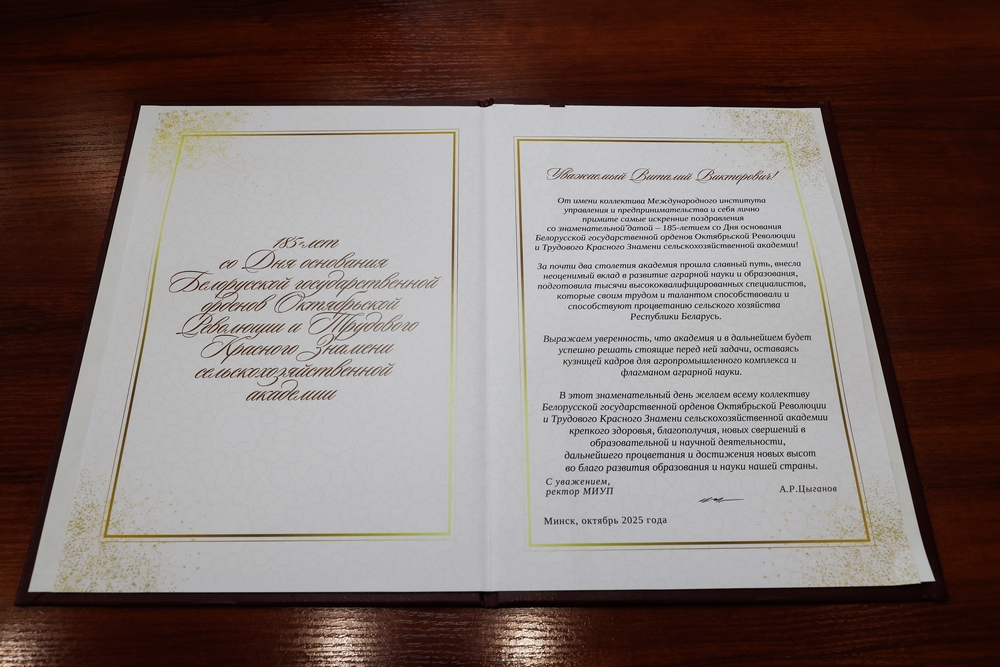 185-лет
со Дня основания
Белорусской государственной
орденов Октябрьской
Революции и Трудового
Красного Знамени
сельскохозяйственной
академии
Уважаемый Виталий Викторович!
От имени коллектива Международного института
управления и предпринимательства и себя лично
примите самые искренние поздравления
со знаменательной датой – 185-летием со Дня основания
Белорусской государственной орденов Октябрьской Революции
и Трудового Красного Знамени сельскохозяйственной академии!
За почти два столетия академия прошла славный путь, внесла
неоценимый вклад в развитие аграрной науки и образования,
подготовила тысячи высококвалифицированных специалистов,
которые своим трудом и талантом способствовали и
способствуют процветанию сельского хозяйства
Республики Беларусь.
Выражаем уверенность, что академия и в дальнейшем будет
успешно решать стоящие перед ней задачи, оставаясь
кузницей кадров для агропромышленного комплекса и
флагманом аграрной науки.
В этот знаменательный день желаем всему коллективу
Белорусской государственной орденов Октябрьской Революции
и Трудового Красного Знамени сельскохозяйственной академии
крепкого здоровья, благополучия, новых свершений в
образовательной и научной деятельности,
дальнейшего процветания и достижения новых высот
во благо развития образования и науки нашей страны.
С уважением,
ректор МИУП А.Р.Цыганов
Минск, октябрь 2025 года